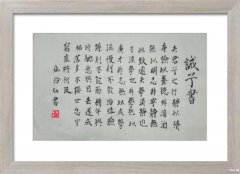 誡子書
夫君子之行靜以修
身儉以養德非淡泊
無以明志非寧靜無
以致遠夫學須靜也
才須學也非學無以
廣才非志無以成學
慢則不能精險
躁則不能性年與
時馳意與去遂成
枯落多不接世悲守
窮廬將何及